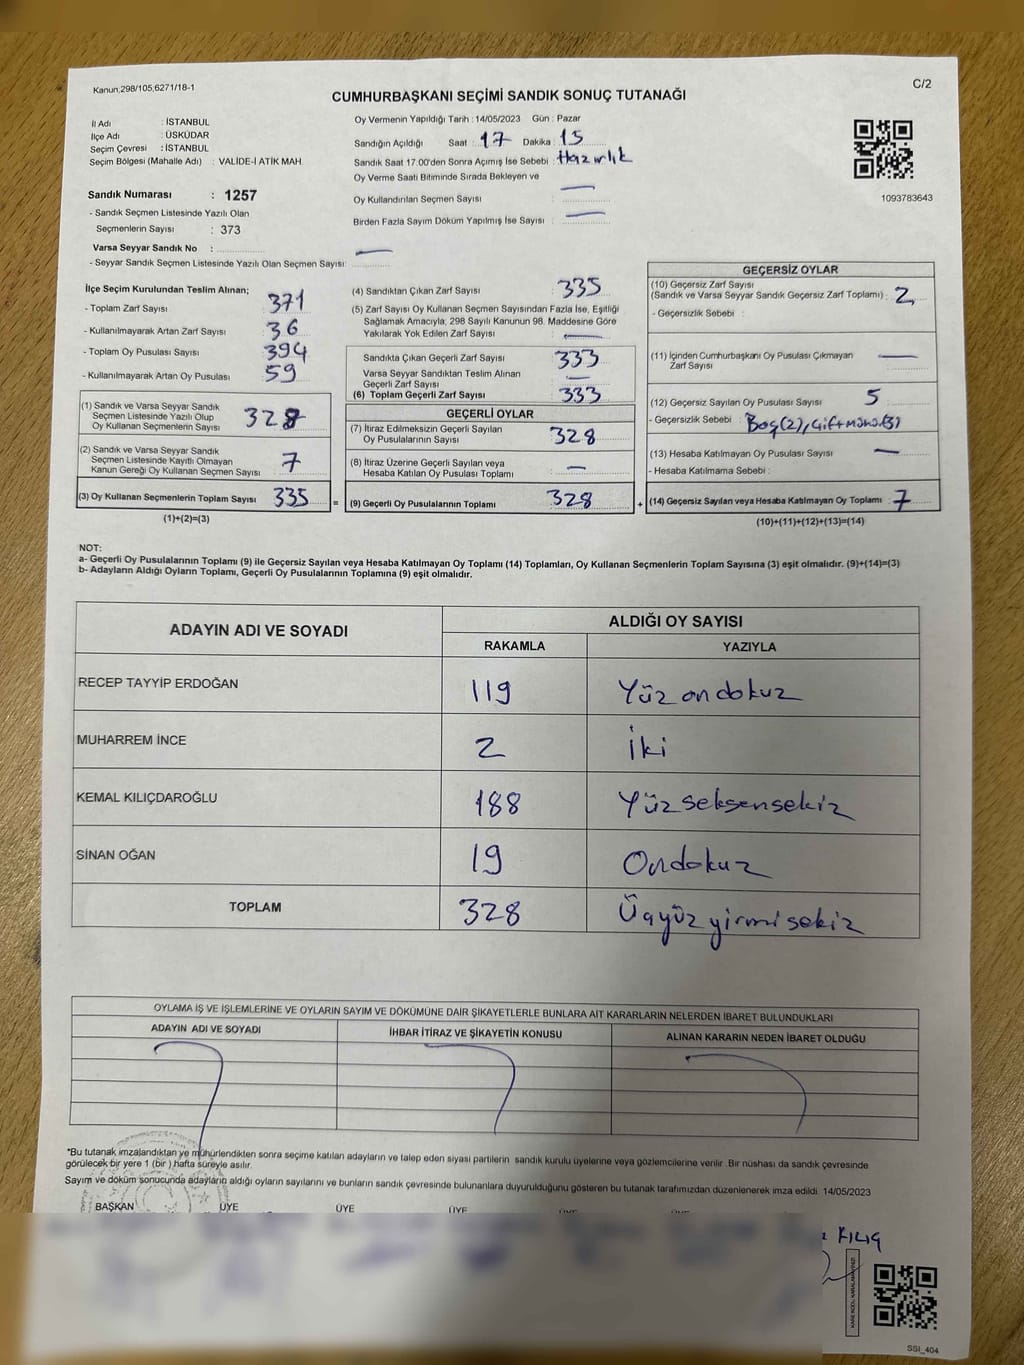 Kanun,298/105,6271/18-1
C/2
CUMHURBAŞKANI SEÇİMİ SANDIK SONUÇ TUTANAĞI
İl Adı : İSTANBUL
İlçe Adı : ÜSKÜDAR
Seçim Çevresi : İSTANBUL
Seçim Bölgesi (Mahalle Adı) : VALİDE-İ ATİK MAH.
Sandık Numarası : 1257
- Sandık Seçmen Listesinde Yazılı Olan
Seçmenlerin Sayısı : 373
Varsa Seyyar Sandık No :
- Seyyar Sandık Seçmen Listesinde Yazılı Olan Seçmen Sayısı: —
Oy Vermenin Yapıldığı Tarih : 14/05/2023 Gün : Pazar
Sandığın Açıldığı Saat : 17 Dakika : 15
Sandık Saat 17:00'den Sonra Açımış İse Sebebi : Hazırlık
Oy Verme Saati Bitiminde Sırada Bekleyen ve
Oy Kullandırılan Seçmen Sayısı : —
Birden Fazla Sayım Döküm Yapılmış İse Sayısı : —
1093783643
İlçe Seçim Kurulundan Teslim Alınan;
- Toplam Zarf Sayısı : 371
- Kullanılmayarak Artan Zarf Sayısı : 36
- Toplam Oy Pusulası Sayısı : 394
- Kullanılmayarak Artan Oy Pusulası : 59
(1) Sandık ve Varsa Seyyar Sandık
Seçmen Listesinde Yazılı Olup
Oy Kullanan Seçmenlerin Sayısı 328
(2) Sandık ve Varsa Seyyar Sandık
Seçmen Listesinde Kayıtlı Olmayan
Kanun Gereği Oy Kullanan Seçmen Sayısı 7
(3) Oy Kullanan Seçmenlerin Toplam Sayısı 335 =
(1)+(2)=(3)
(4) Sandıktan Çıkan Zarf Sayısı : 335
(5) Zarf Sayısı Oy Kullanan Seçmen Sayısından Fazla İse, Eşitliği
Sağlamak Amacıyla; 298 Sayılı Kanunun 98. Maddesine Göre
Yakılarak Yok Edilen Zarf Sayısı : —
Sandıkta Çıkan Geçerli Zarf Sayısı : 333
Varsa Seyyar Sandıktan Teslim Alınan
Geçerli Zarf Sayısı : —
(6) Toplam Geçerli Zarf Sayısı : 333
GEÇERLİ OYLAR
(7) İtiraz Edilmeksizin Geçerli Sayılan
Oy Pusulalarının Sayısı : 328
(8) İtiraz Üzerine Geçerli Sayılan veya
Hesaba Katılan Oy Pusulası Toplamı : —
(9) Geçerli Oy Pusulalarının Toplamı : 328 +
GEÇERSİZ OYLAR
(10) Geçersiz Zarf Sayısı
(Sandık ve Varsa Seyyar Sandık Geçersiz Zarf Toplamı) : 2
- Geçersizlik Sebebi :
(11) İçinden Cumhurbaşkanı Oy Pusulası Çıkmayan
Zarf Sayısı : —
(12) Geçersiz Sayılan Oy Pusulası Sayısı : 5
- Geçersizlik Sebebi : Boş(2), Çift
(13) Hesaba Katılmayan Oy Pusulası Sayısı : —
- Hesaba Katılmama Sebebi :
(14) Geçersiz Sayılan veya Hesaba Katılmayan Oy Toplamı : 7
(10)+(11)+(12)+(13)=(14)
NOT:
a- Geçerli Oy Pusulalarının Toplamı (9) ile Geçersiz Sayılan veya Hesaba Katılmayan Oy Toplamı (14) Toplamları, Oy Kullanan Seçmenlerin Toplam Sayısına (3) eşit olmalıdır. (9)+(14)=(3)
b- Adayların Aldığı Oyların Toplamı, Geçerli Oy Pusulalarının Toplamına (9) eşit olmalıdır.
ADAYIN ADI VE SOYADI
ALDIĞI OY SAYISI
RAKAMLA YAZIYLA
RECEP TAYYİP ERDOĞAN 119 Yüz ondokuz
MUHARREM İNCE 2 İki
KEMAL KILIÇDAROĞLU 188 Yüz seksensekiz
SİNAN OĞAN 19 Ondokuz
TOPLAM 328 Üçyüz yirmisekiz
OYLAMA İŞ VE İŞLEMLERİNE VE OYLARIN SAYIM VE DÖKÜMÜNE DAİR ŞİKAYETLERLE BUNLARA AİT KARARLARIN NELERDEN İBARET BULUNDUKLARI
ADAYIN ADI VE SOYADI İHBAR İTİRAZ VE ŞİKAYETİN KONUSU ALINAN KARARIN NEDEN İBARET OLDUĞU
*Bu tutanak imzalandıktan ve mühürlendikten sonra seçime katılan adayların ve talep eden siyasi partilerin sandık kurulu üyelerine veya gözlemcilerine verilir. Bir nüshası da sandık çevresinde
görülecek bir yere 1 (bir ) hafta süreyle asılır.
Sayım ve döküm sonucunda adayların aldığı oyların sayılarını ve bunların sandık çevresinde bulunanlara duyurulduğunu gösteren bu tutanak tarafımızdan düzenlenerek imza edildi. 14/05/2023
BAŞKAN ÜYE ÜYE ÜYE
KILIÇ
SSI_404